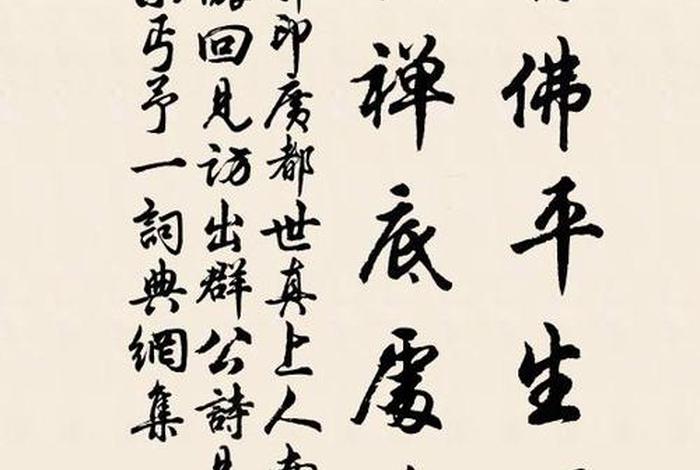 佛平生
禅底處
印廣都世真上人
回見訪出群公詩
丐予一詞典網集